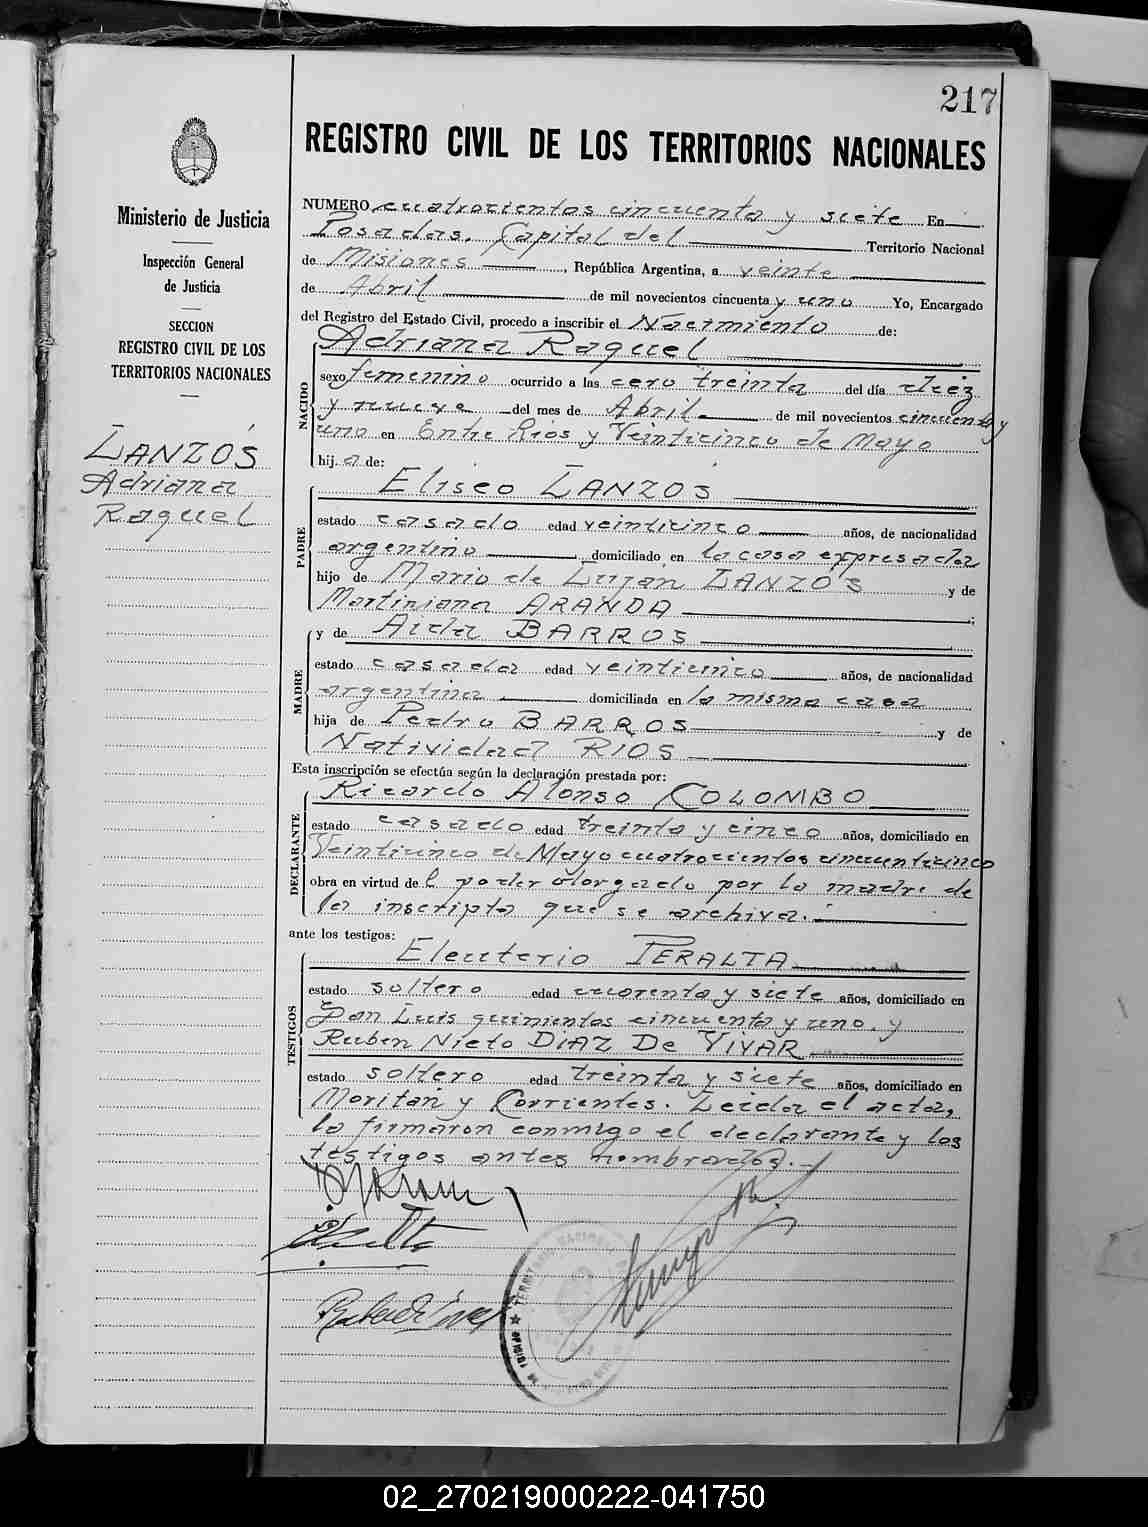 217
REGISTRO CIVIL DE LOS TERRITORIOS NACIONALES
Ministerio de Justicia
Inspección General
de Justicia
SECCION
REGISTRO CIVIL DE LOS
TERRITORIOS NACIONALES
LANZÓS
Adriana
Raquel
NUMERO cuatrocientos cincuenta y siete En
Posadas, Capital del Territorio Nacional
de Misiones, República Argentina, a veinte
de Abril de mil novecientos cincuenta y uno Yo, Encargado
del Registro del Estado Civil, procedo a inscribir el Nacimiento de:
NACIDO
Adriana Raquel
sexo femenino ocurrido a las cero treinta del día diez
y nueve del mes de Abril de mil novecientos cincuenta y
uno en Entre Rios y Veinticinco de Mayo
hija de:
PADRE
Eliseo LANZÓS
estado casado edad veinticinco años, de nacionalidad
argentino domiciliado en la casa expresada
hijo de Mario de Luján LANZÓS y de
Martiniana ARANDA;
MADRE
y de Aida BARROS
estado casada edad veinticinco años, de nacionalidad
argentina domiciliada en la misma casa
hija de Pedro BARROS y de
Natividad RIOS
Esta inscripción se efectúa según la declaración prestada por:
DECLARANTE
Ricardo Alonso COLOMBO
estado casado edad treinta y cinco años, domiciliado en
Veinticinco de Mayo cuatrocientos cincuenticinco
obra en virtud del poder otorgado por la madre de
la inscripta que se archiva.
ante los testigos:
TESTIGOS
Eleuterio PERALTA
estado soltero edad cuarenta y siete años, domiciliado en
San Luis quinientos cincuenta y uno, y
Ruben Nieto DIAZ De VIVAR
estado soltero edad treinta y siete años, domiciliado en
Moritán y Corrientes. Leida el acta,
la firmaron conmigo el declarante y los
testigos antes nombrados.-
TERRITORIO NACIONAL
02_270219000222-041750